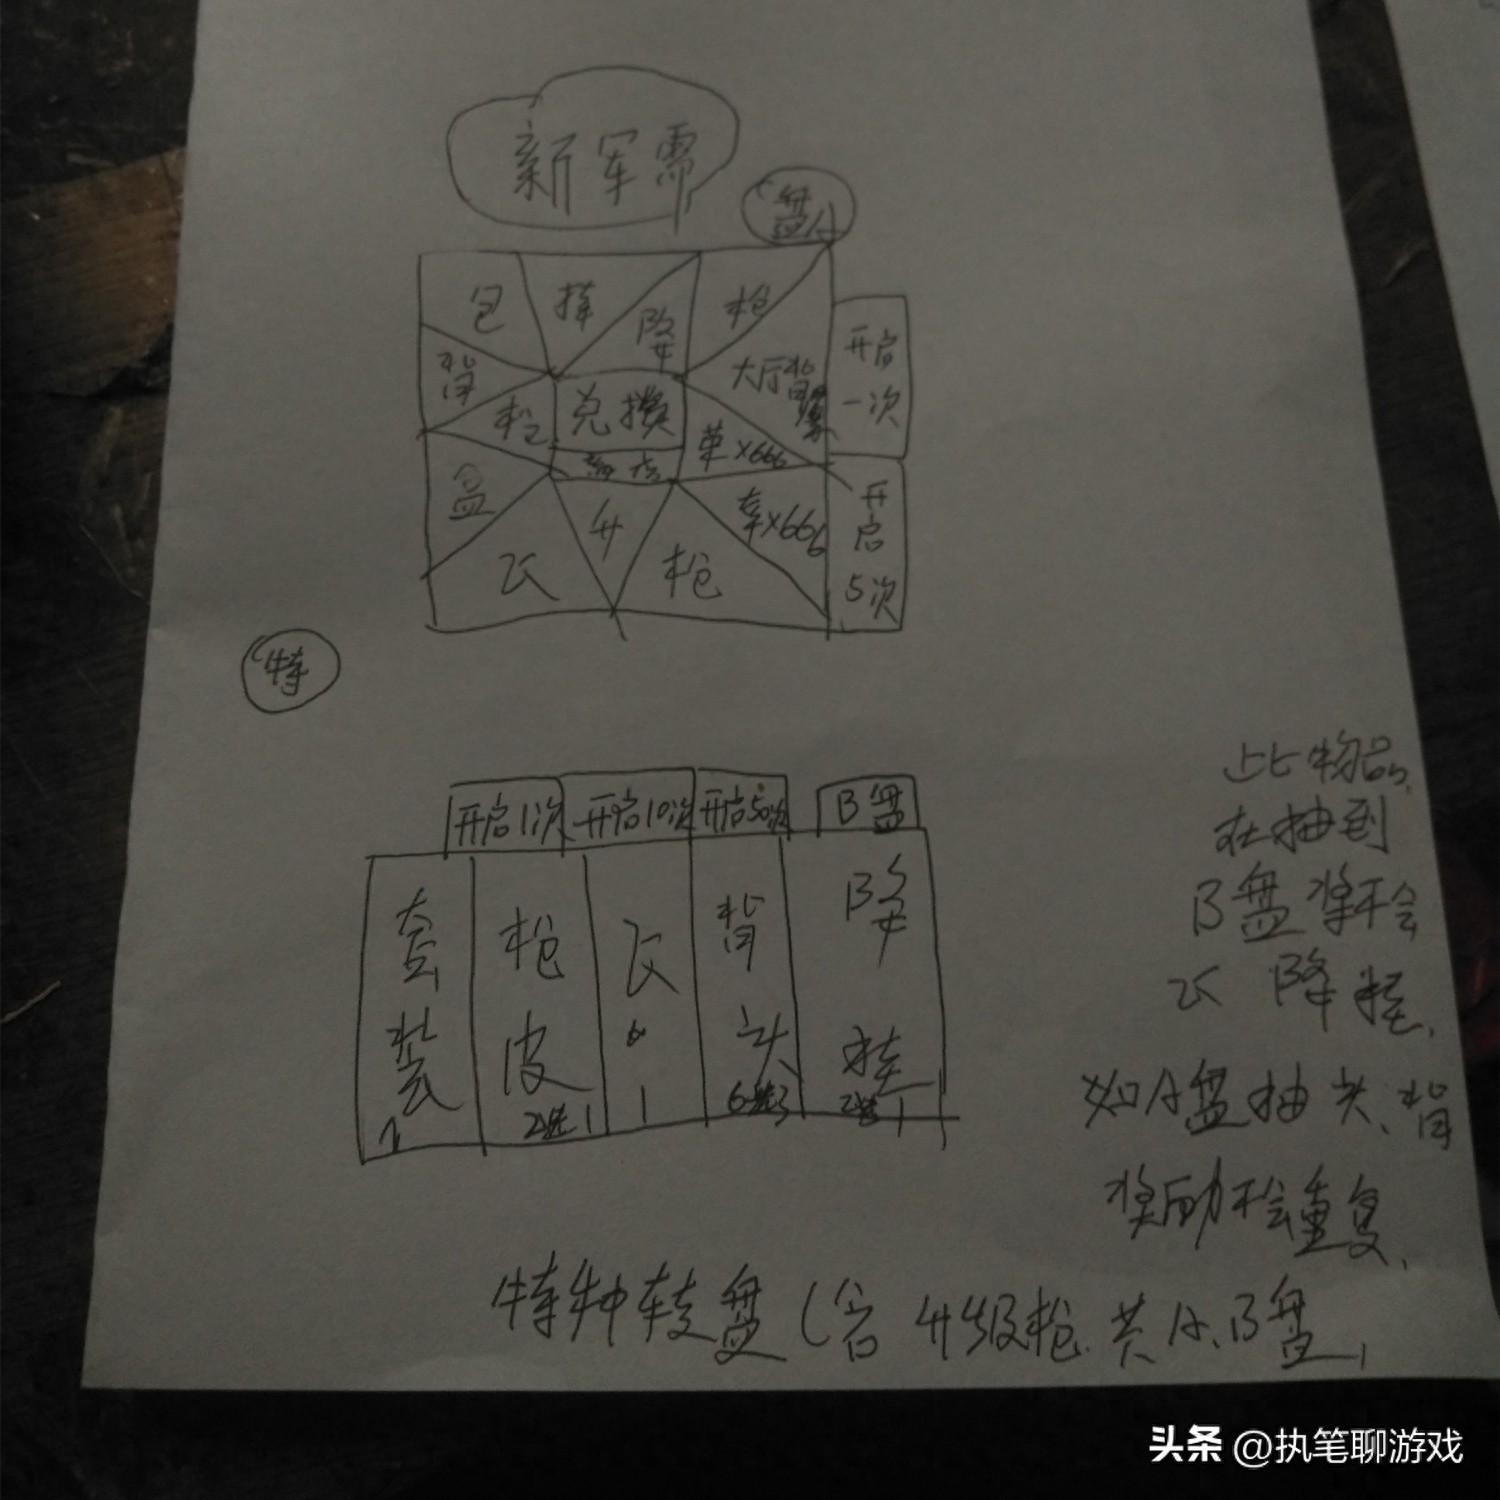 新军需
盘A
包
挂
降
枪
背
大厅背景
开启
一次
枪
兑换
草x666
盒
草x666
开
启
5次
飞
升
枪
特
开启1次
开启10次
开启50次
B盘
套
装
枪
皮
2选1
飞
1
背
头
6选3
降
挂
2选1
此物品
在抽到
B盘将不会
飞 降 挂.
如A盘抽头、背
奖励不会重复.
特种转盘(含 升级枪.共A、B盘,
头条 @执笔聊游戏